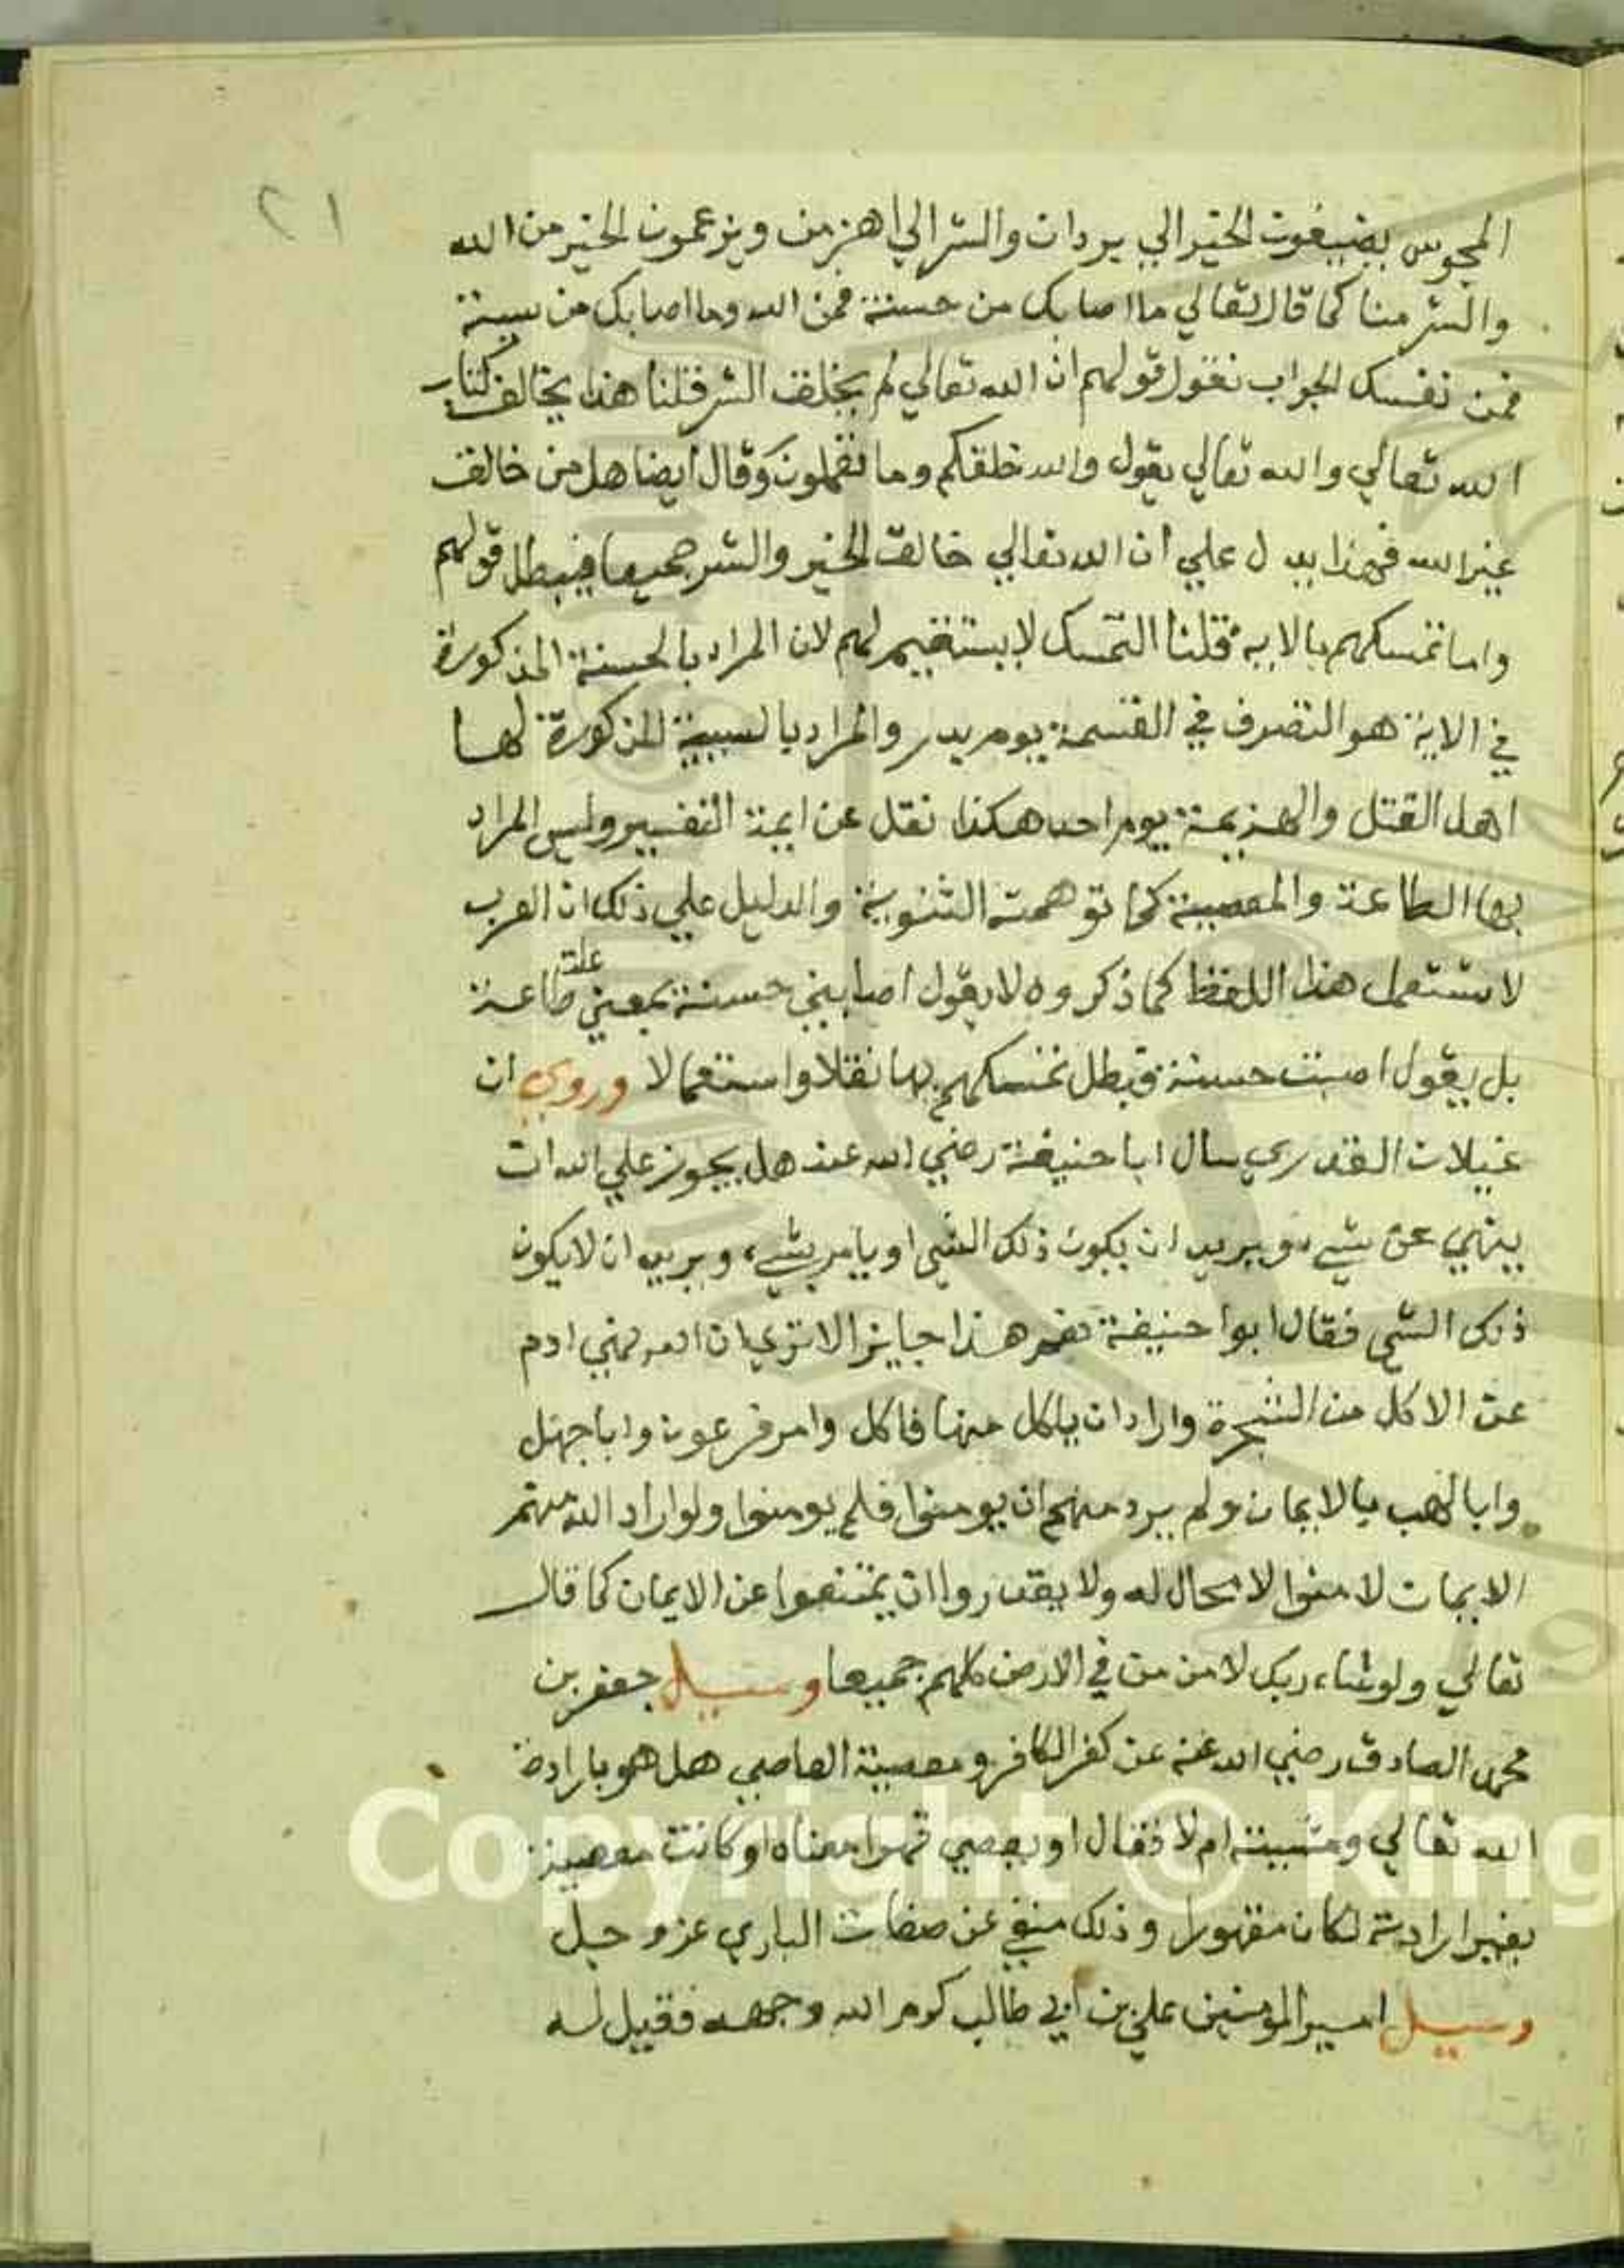 ٢١
المجوس يضيفون الخير الي يردان والشر الي اهرمن ويزعمون الخير من الله
والشر منا كما قال تعالي ما اصابك من حسنة فمن الله وما اصابك من سيئة
فمن نفسك الجواب نقول قولهم ان الله تعالي لم يخلق الشر قلنا هذا يخالف كتاب
الله تعالي والله تعالي يقول والله خلقكم وما تعملون وقال ايضا هل من خالق
غير الله فهذا يدل علي ان الله تعالي خالق الخير والشر جميعا فيبطل قولهم
واما تمسكهم بالاية قلنا التمسك لا يستقيم لهم لان المراد بالحسنة المذكورة
في الاية هو النصرف في القسمة يوم بدر والمراد بالسيية المذكورة لها
اهل القتل والهزيمة يوم احد هكذا نقل عن ايمة التفسير وليس المراد
بها الطاعة والمعصية كما توهمته الثنوية والدليل علي ذلك ان العرب
لا تستعمل هذا اللفظ كما ذكروه لا يقول اصابني حسنة بمعني طاعة
علت
بل يقول اصبت حسنة فبطل تمسكهم بها نقلا واستعمالا وروي ان
غيلان القدري سال ابا حنيفة رضي الله عنه هل يجوز علي الله ان
ينهي عن شيء ويريد ان يكون ذلك الشي او يامر بشيء ويريد ان لا يكون
ذلك الشي فقال ابوا حنيفة نعم هذا جايز الا تري ان الله نهي ادم
عن الاكل من الشجرة واراد ان ياكل منها فاكل وامر فرعون وابا جهل
وابا لهب بالايمان ولم يرد منهم ان يومنوا فلم يومنوا ولو اراد الله منهم
الايمان لامنوا لا محال له ولا يقدروا ان يمتنعوا عن الايمان كما قال
تعالي ولو شاء ربك لامن من في الارض كلهم جميعا وسيل جعفر بن
محمد الصادق رضي الله عنه عن كفر الكافر ومعصية العاصي هل هو بارادة
الله تعالي ومشيته ام لا فقال او يعصي قهرا معناه لو كانت معصية
بغير ارادته لكان مقهورا وذلك منفي عن صفات الباري عز وجل
وسيل امير المومنين علي بن ابي طالب كرم الله وجهه فقيل له
Copyright © King